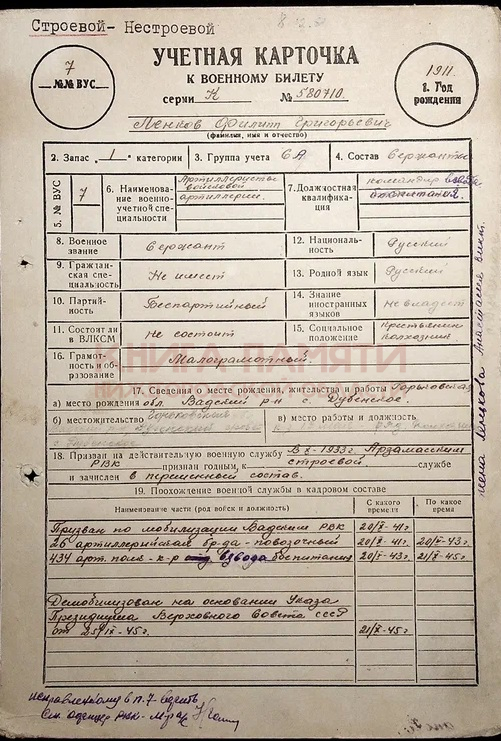 Строевой- Нестроевой
УЧЕТНАЯ КАРТОЧКА
К ВОЕННОМУ БИЛЕТУ
серии К №580710.
7
№№ ВУС
1911.
г. Год
рождения
Ленков Филипп Григорьевич
(фамилия, имя и отчество)
2. Запас 1 категории
3. Группа учета СА
4. Состав Сержантск
5. № ВУС
7
6. Наименование военно-учетной специальности
Артиллеристы
войсковой
артиллерии.
7. Должностная квалификация
командир
8. Военное звание
Сержант
12. Национальность
Русский
9. Гражданская специальность
Не имеет
13. Родной язык
Русский
10. Партийность
Беспартийный
14. Знание иностранных языков
Не владеет
11. Состоит ли в ВЛКСМ
Не состоит
15. Социальное положение
Крестьянин
колхозник
КНИГА ПАМЯТИ
16. Грамотность и образование
Малограмотный.
17. Сведения о месте рождения, жительства и работы Горьковская
а) место рождения обл. Вадский р-н с. Дубенское.
б) местожительство
в) место работы и должность
18. Призван на действительную военную службу В X-1933г. Арзамасским
РВК признан годным, к строевой службе
и зачислен в переменный состав.
19. Прохождение военной службы в кадровом составе
Наименование части (род войск и должность)
С какого времени
По какое время
Призван по мобилизации Вадским РВК 20/X-41г.
26 артиллерийская бр-да - повозочный 20/X-41г. 20/X-43г.
434 арт. полк - к-р взвода 20/X-43г. 21/X-45г.
Демобилизован на основании Указа
Президиума Верховного Совета СССР
от 25/IX-45г. 21/X-45г.
жена Ленкова Анастасия
исправленному в п. 7 верить